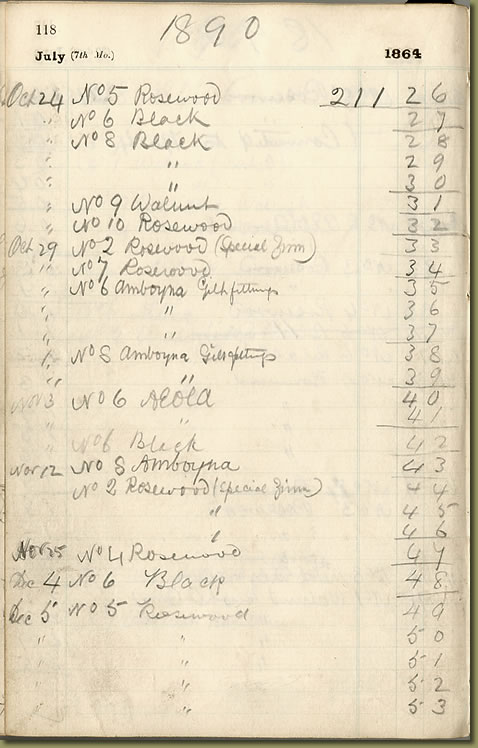 118
1890
July (7th Mo.) 1864
Oct 24 No 5 Rosewood 211 26
" No 6 Black 27
" No 8 Black 28
" " 29
" " 30
" No 9 Walnut 31
" No 10 Rosewood 32
Oct 29 No 2 Rosewood (Special Firm) 33
" No 7 Rosewood 34
" No 6 Amboyna Gilt fittings 35
" " 36
" " 37
" No 8 Amboyna Gilt fittings 38
" " 39
Nov 3 No 6 40
" " 41
No 6 Black 42
Nov 12 No 8 Amboyna 43
No 2 Rosewood (Special Firm) 44
" 45
" 46
Nov 25 No 4 Rosewood 47
Dec 4 No 6 Black 48
Dec 5 No 5 Rosewood 49
" " 50
" " 51
" " 52
" " 53